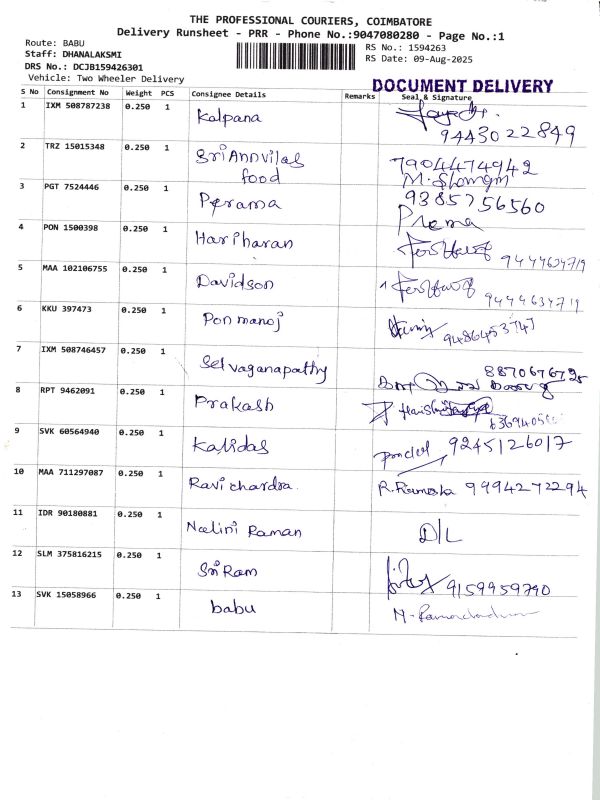 THE PROFESSIONAL COURIERS, COIMBATORE
Delivery Runsheet - PRR - Phone No.:9047080280 - Page No.:1
Route: BABU
Staff: DHANALAKSMI
DRS No.: DCJB159426301
Vehicle: Two Wheeler Delivery
RS No.: 1594263
RS Date: 09-Aug-2025
DOCUMENT DELIVERY
S No Consignment No Weight PCS Consignee Details Remarks Seal & Signature
1 IXM 508787238 0.250 1 Kalpana
9443022849
2 TRZ 15015348 0.250 1 Sri Annvilas food 7904474942
3 PGT 7524446 0.250 1 Perama 9385756560
Prema
4 PON 1500398 0.250 1 Hariharan 9444634719
5 MAA 102106755 0.250 1 Davidson 9444634719
6 KKU 397473 0.250 1 Pon manoj
7 IXM 508746457 0.250 1 Selvaganapathy
8 RPT 9462091 0.250 1 Prakash
9 SVK 60564940 0.250 1 Kalidas 9245126017
10 MAA 711297087 0.250 1 Ravichardra. R. Ramesha 9994272294
11 IDR 90180881 0.250 1 Nalini Raman D/L
12 SLM 375816215 0.250 1 Sri Ram 9159959790
13 SVK 15058966 0.250 1 babu